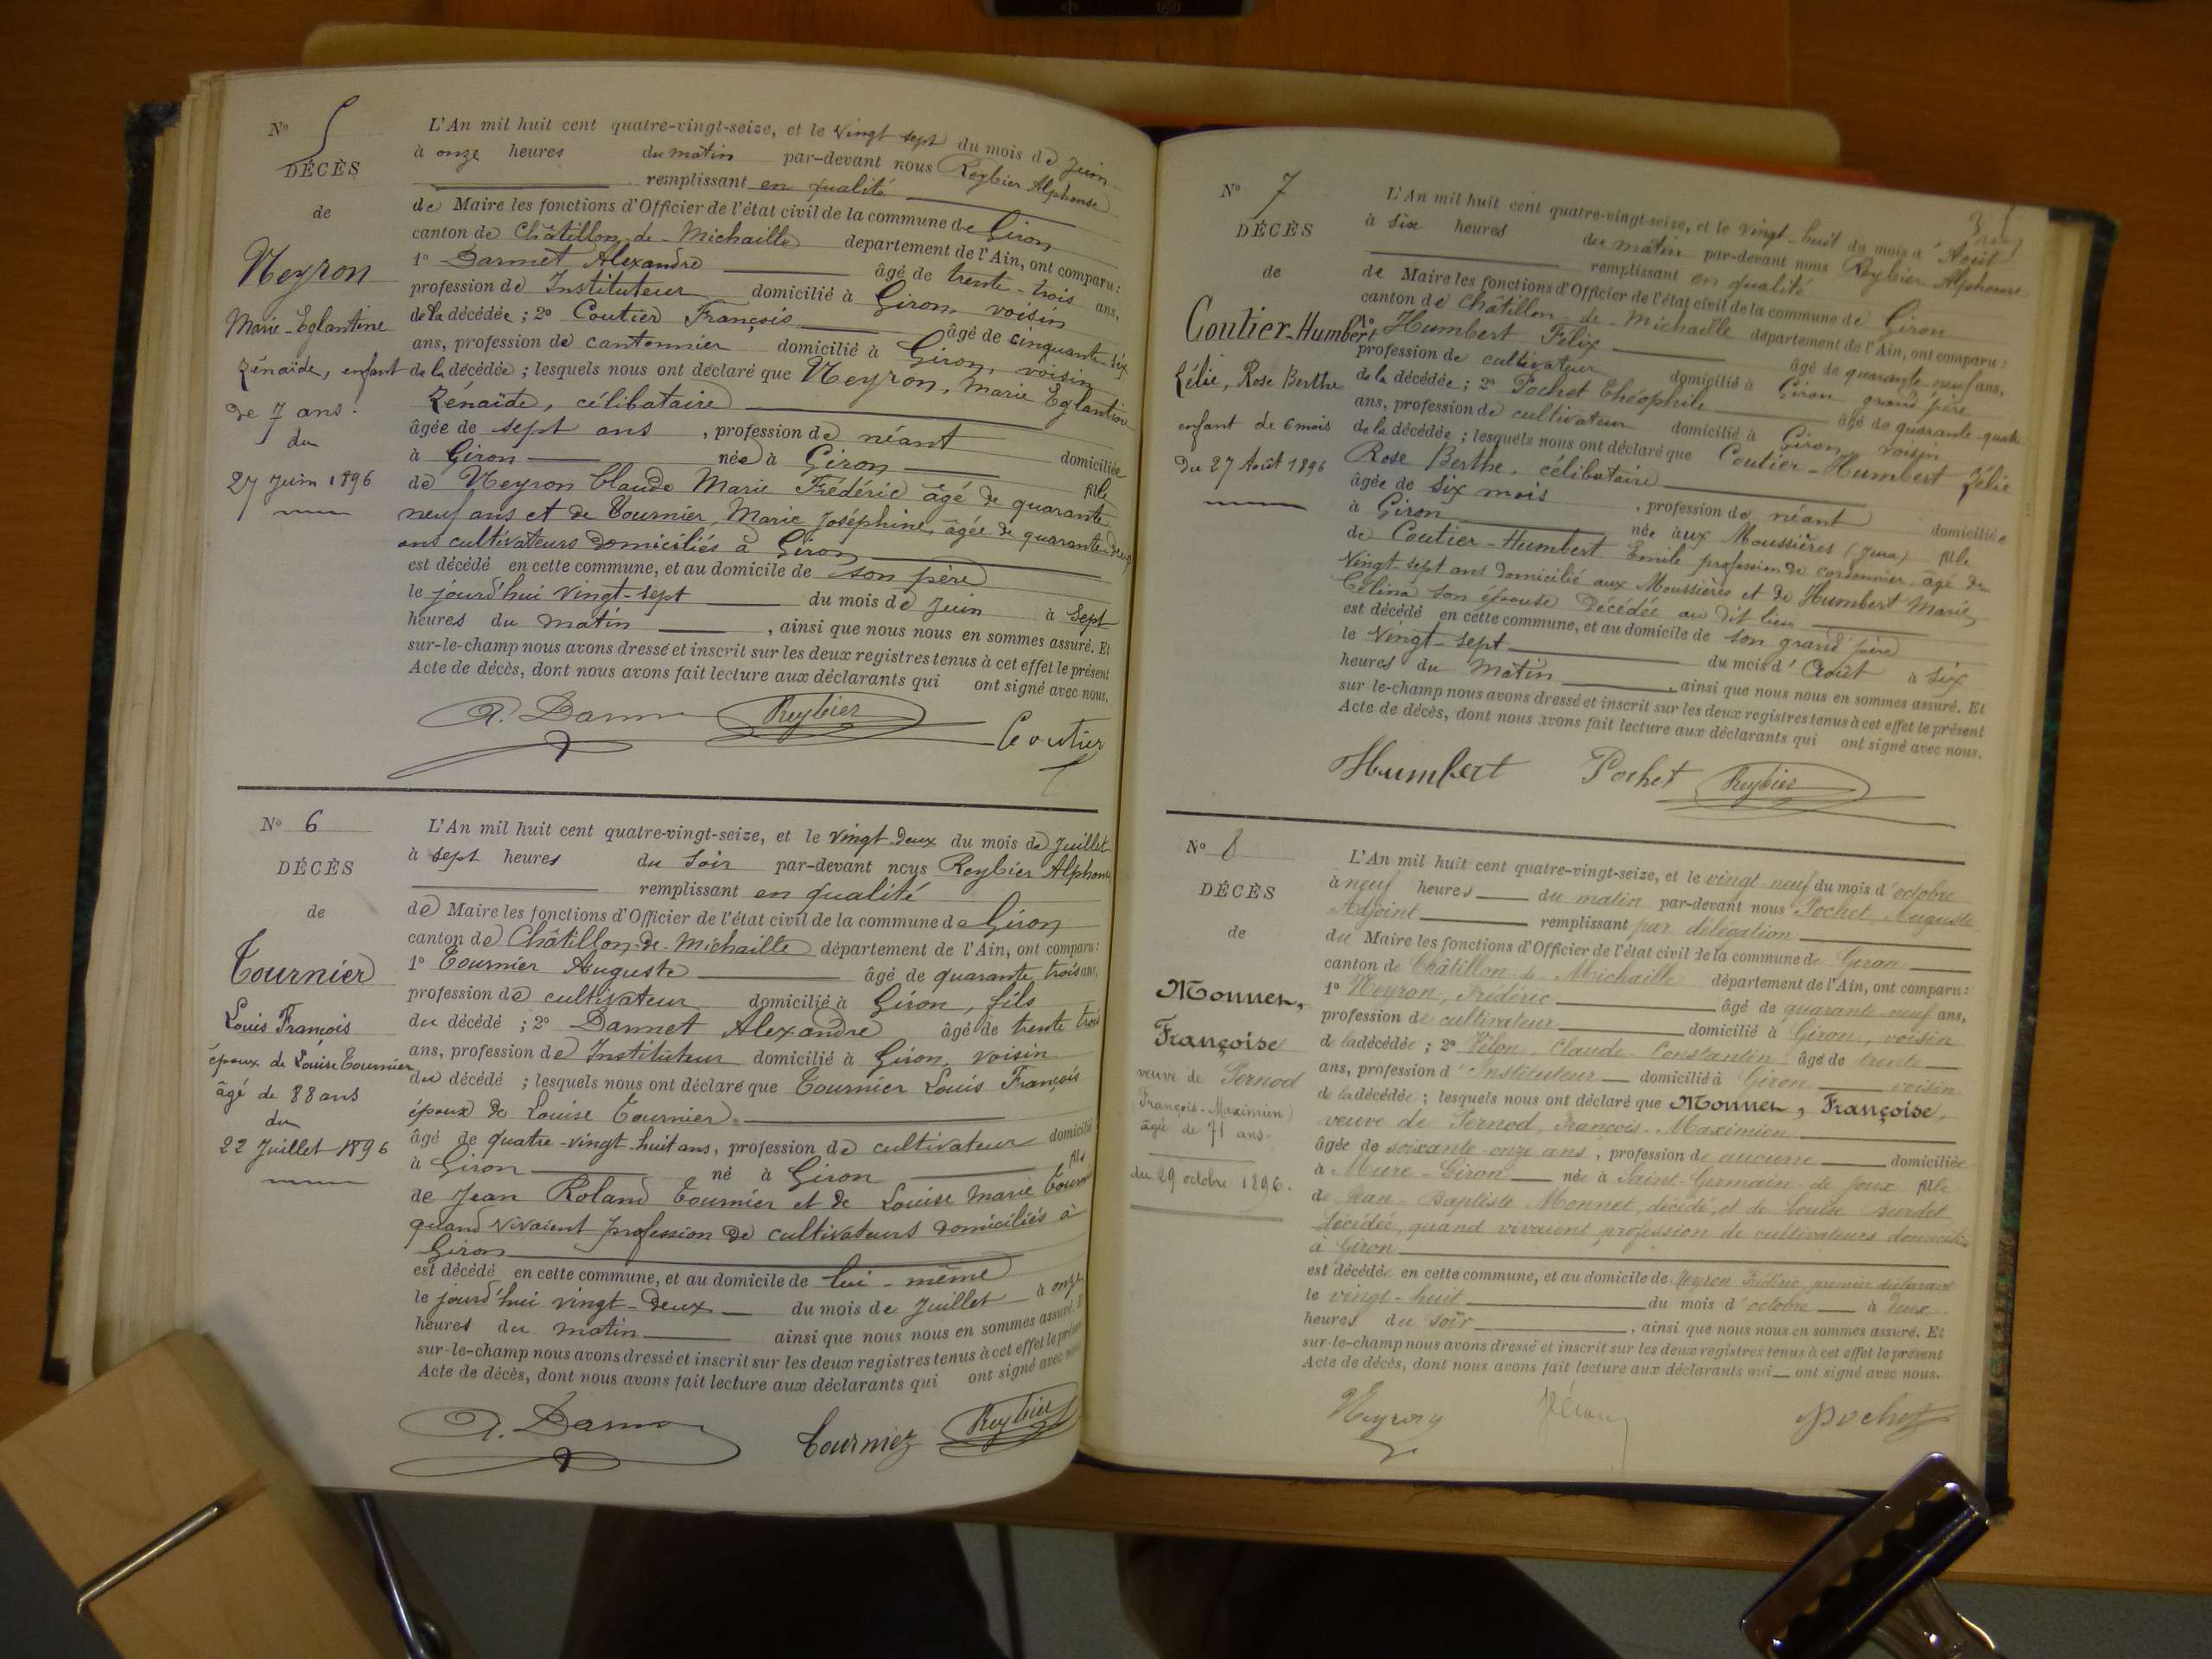 N° 5
DÉCÈS
de
Neyron
Marie-Eglantine
Zénaïde, enfant
de 7 ans.
du
27 Juin 1896
L'An mil huit cent quatre-vingt-seize, et le vingt sept du mois de Juin
à onze heures du matin par-devant nous Reybier Alphonse
remplissant en qualité
de Maire les fonctions d'Officier de l'état civil de la commune de Giron
canton de Châtillon-de-Michaille département de l'Ain, ont comparu :
1° Darmet Alexandre âgé de trente-trois ans,
profession de Instituteur domicilié à Giron, voisin
de la décédée ; 2° Coutier François âgé de cinquante-six
ans, profession de cantonnier domicilié à Giron, voisin
de la décédée ; lesquels nous ont déclaré que Neyron, Marie Eglantine
Zénaïde, célibataire
âgée de sept ans , profession de néant domiciliée
à Giron née à Giron fille
de Neyron Claude Marie Frédéric âgé de quarante
neuf ans et de Tournier, Marie Joséphine, âgée de quarante-deux
ans cultivateurs domiciliés à Giron
est décédé en cette commune, et au domicile de son père
le jourd'hui vingt-sept du mois de Juin à Sept
heures du matin , ainsi que nous nous en sommes assuré. Et
sur-le-champ nous avons dressé et inscrit sur les deux registres tenus à cet effet le présent
Acte de décès, dont nous avons fait lecture aux déclarants qui ont signé avec nous.
Reybier
Coutier
N° 6
DÉCÈS
de
Tournier
Louis François
époux de Louise Tournier
âgé de 88 ans
du
22 Juillet 1896
L'An mil huit cent quatre-vingt-seize, et le vingt-deux du mois de Juillet
à sept heures du soir par-devant nous Reybier Alphonse
remplissant en qualité
de Maire les fonctions d'Officier de l'état civil de la commune de Giron
canton de Châtillon-de-Michaille département de l'Ain, ont comparu :
1° Tournier Auguste âgé de quarante trois ans,
profession de cultivateur domicilié à Giron, fils
du décédé ; 2° Darmet Alexandre âgé de trente trois
ans, profession de Instituteur domicilié à Giron, voisin
du décédé ; lesquels nous ont déclaré que Tournier Louis François
époux de Louise Tournier
âgé de quatre-vingt-huit ans, profession de cultivateur domicilié
à Giron né à Giron fils
de Jean Roland Tournier et de Louise Marie Tournier
quand vivaient profession de cultivateurs domiciliés à
Giron
est décédé en cette commune, et au domicile de lui-même
le jourd'hui vingt-deux du mois de Juillet à onze
heures du matin ainsi que nous nous en sommes assuré. Et
sur-le-champ nous avons dressé et inscrit sur les deux registres tenus à cet effet le présent
Acte de décès, dont nous avons fait lecture aux déclarants qui ont signé avec nous
Tournier
Reybier
N° 7
DÉCÈS
de
Coutier-Humbert
Zélie, Rose Berthe
enfant de 6 mois
du 27 Août 1896
L'An mil huit cent quatre-vingt-seize, et le vingt-huit du mois d'Août
à six heures du matin par-devant nous Reybier Alphonse
remplissant en qualité
de Maire les fonctions d'Officier de l'état civil de la commune de Giron
canton de Châtillon-de-Michaille département de l'Ain, ont comparu :
1° Humbert Félix âgé de quarante-neuf ans,
profession de cultivateur domicilié à Giron grand père
de la décédée ; 2° Pochet Théophile âgé de quarante-quatre
ans, profession de cultivateur domicilié à Giron, voisin
de la décédée ; lesquels nous ont déclaré que Coutier-Humbert Zélie
Rose Berthe, célibataire
âgée de six mois , profession de néant domiciliée
à Giron née aux Moussières (Jura) fille
de Coutier-Humbert Emile profession de cordonnier, âgé de
vingt-sept ans domicilié aux Moussières et de Humbert Marie
Célina son épouse décédée au dit lieu
est décédé en cette commune, et au domicile de son grand'père
le vingt-sept du mois d'Août à six
heures du matin , ainsi que nous nous en sommes assuré. Et
sur le-champ nous avons dressé et inscrit sur les deux registres tenus à cet effet le présent
Acte de décès, dont nous avons fait lecture aux déclarants qui ont signé avec nous.
Humbert Pochet Reybier
N° 8
DÉCÈS
de
Monnet,
Françoise
veuve de Pernod
(François-Maximien)
âgée de 71 ans.
du 29 octobre 1896.
L'An mil huit cent quatre-vingt-seize, et le vingt neuf du mois d'octobre
à neuf heures du matin par-devant nous Pochet, Auguste,
Adjoint remplissant par délégation
du Maire les fonctions d'Officier de l'état civil de la commune de Giron
canton de Châtillon-de-Michaille département de l'Ain, ont comparu :
1° Neyron, Frédéric âgé de quarante-neuf ans,
profession de cultivateur domicilié à Giron, voisin
de la décédée ; 2° Claude Constantin âgé de trente
ans, profession d'Instituteur domicilié à Giron voisin
de la décédée ; lesquels nous ont déclaré que Monnet, Françoise,
veuve de Pernod, François-Maximien
âgée de soixante-onze ans , profession de aucune domiciliée
à Mure-Giron née à Saint-Germain-de-Joux fille
de Jean-Baptiste Monnet, décédé, et de Louise Burdet,
décédée, quand vivaient, profession de cultivateurs domiciliés
à Giron
est décédée en cette commune, et au domicile de Neyron Frédéric, premier déclarant
le vingt-huit du mois d'octobre à deux
heures du soir , ainsi que nous nous en sommes assuré. Et
sur-le-champ nous avons dressé et inscrit sur les deux registres tenus à cet effet le présent
Acte de décès, dont nous avons fait lecture aux déclarants qui ont signé avec nous.
Neyron
Pochet